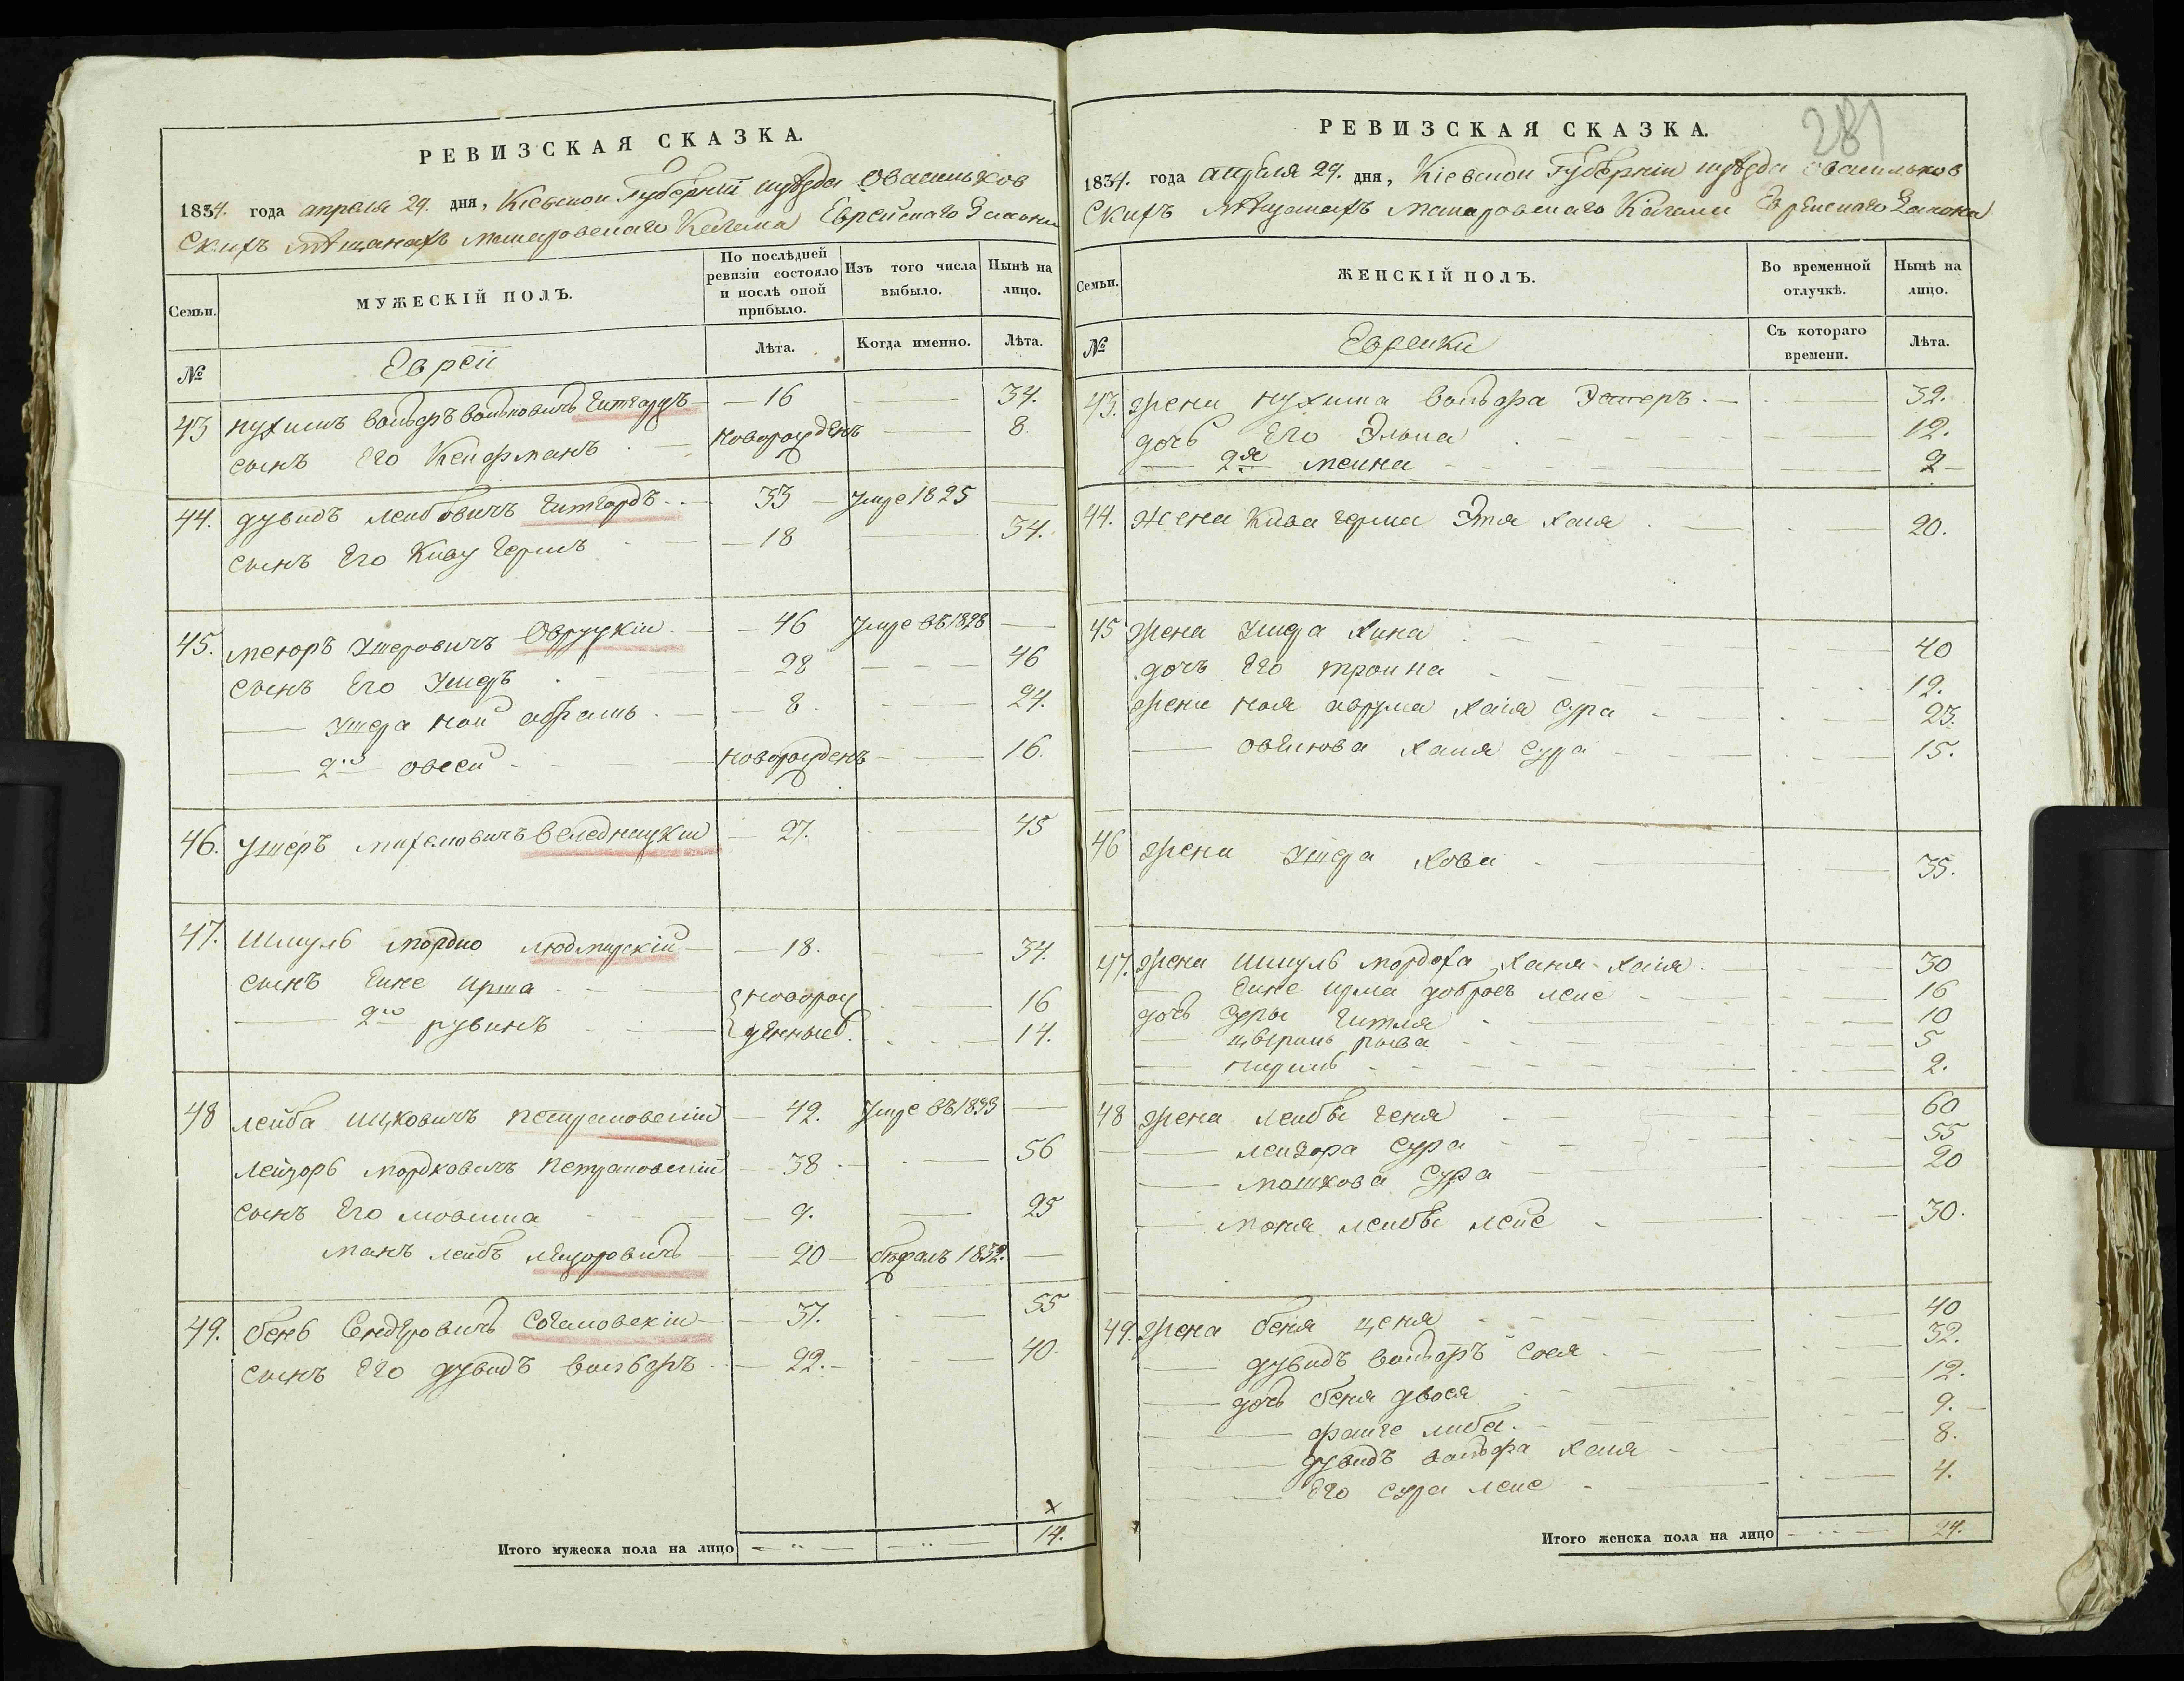 РЕВИЗСКАЯ СКАЗКА.
1834. года апреля 29. дня, Кіевской Губерніи уѣзда Овасильков
Скихъ мѣщанахъ макаровскаго Кагала Еврейскаго Закона
Семьи.
МУЖЕСКІЙ ПОЛЪ.
По послѣдней ревизіи состояло и послѣ оной прибыло.
Изъ того числа выбыло.
Нынѣ на лицо.
№
Еврей
Лѣта.
Когда именно.
Лѣта.
43 нухимъ вольфъ вольковичъ 16 34.
сынъ Его новорожденъ 8
44. дувидъ лейбовичъ 33 умре 1825
сынъ Его Кива Гершъ 18 34.
45. меюръ Ушеровичъ Овруцкій 46 умре въ 1828
сынъ Его Ушеръ 28 46
Ушера ной абрамъ 8. 24.
2й овсей новорожденъ 16.
46. Ушеръ михелевичъ веледницкій 27. 45
47. Шмуль мордко людмирскій 18. 34.
сынъ Эине ирша {новорож 16
2й рувинъ {денные. 14.
48 лейба ицковичъ петрановскій 42. умре въ 1833
лейзоръ мордковичъ петрановскій 38 56
сынъ Его мовша 9. 25
манъ лейбъ лейзоровичъ 20 бѣжалъ 1832.
49. бень Сендеровичъ 37. 55
сынъ Его дувидъ вольфъ 22. 40.
х
Итого мужеска пола на лицо 14.
281
РЕВИЗСКАЯ СКАЗКА.
1834. года апреля 29. дня, Кіевской Губерніи уѣзда овасильков
Скихъ Мѣщанахъ макаровскаго Кагала Еврейскаго Закона
Семьи.
ЖЕНСКІЙ ПОЛЪ.
Во временной отлучкѣ.
Нынѣ на лицо.
№
Еврейки
Съ котораго времени.
Лѣта.
43. жена нухима вольфа Эстеръ. 32.
дочь Его 12.
2я 2
44. жена Кива герша Этя хая 20.
45 жена Ушера хина 40
дочъ Его 12.
жена ноя аврума хая сура 23.
овсиова хая сура 15.
46 жена Ушера хова 35.
47. жена шмуль мордоха ханя-хая 30
Эине ирша добрось лее 16
дочь суры гитля 10
рыва 5
2.
48 жена лейбы геня 60
лейзора сура 55
мошкова сура 20
маня лейбы лее 30.
49. жена беня ценя 40
дувидъ вольфъ сося 32.
дочь беня двося 12.
файге либа. 9.
дувидъ вольфа хая 8.
Его сура лее 4.
Итого женска пола на лицо 24.